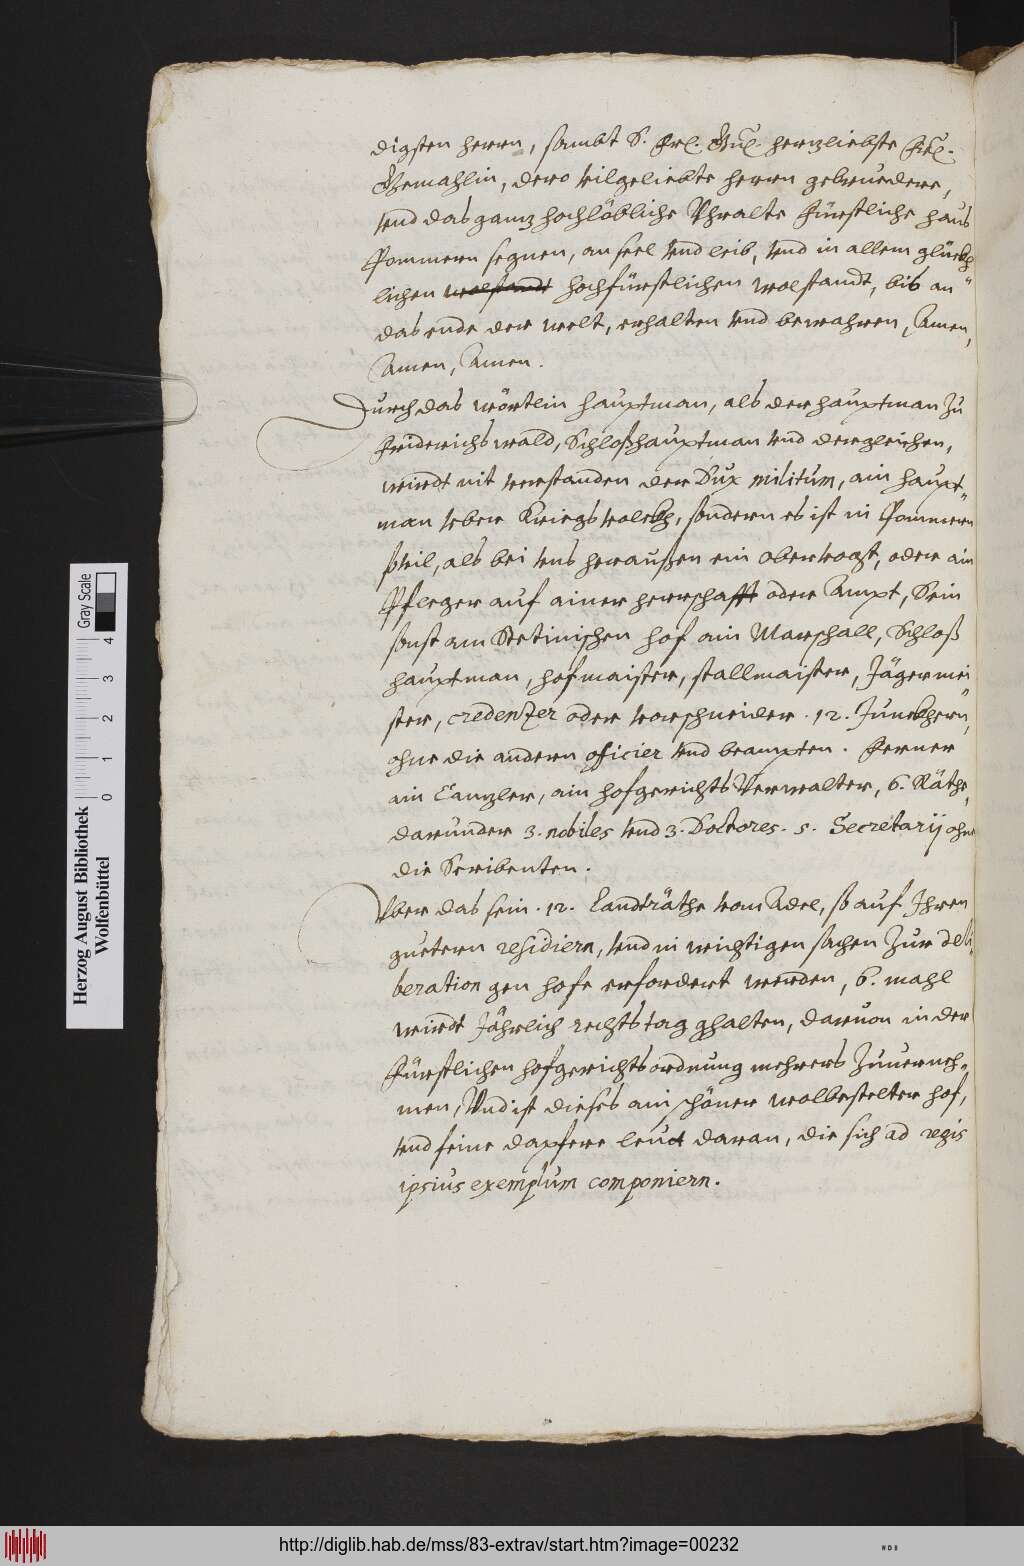 digsten herrn, sambt S. Frl. Gn̄l. herzliebste Frl̄.
Gemahlin, dero vilgeliebte herrn gebruedere,
vnd das ganz hochlöbliche Vhralte Fürstliche haus
Pommern segnen, an seel vnd leib, vnd in allem glückh-
lichen wolstandt hochfürstlichen wolstandt, bis an
das ende der welt, erhalten vnd bewahren, Amen,
Amen, Amen.
Durch das wörtlin hauptman, als der hauptman Zu
Friderichswald, Schloßhauptman vnd dergleichen,
wirdt nit verstanden der Dux militum, ain haupt-
man veber Kriegsvolckh, sondern es ist in Pommern
ßvil, als bei vns heraußen ein obervogt, oder ain
Pfleger auf ainer herrschafft oder Ampt, Sein
sonst am Stetinischen hof ain Marschall, Schloß
hauptman, hofmaister, stallmaister, Jägermei
ster, credenzer oder vorschneider. 12. Junckhern,
ohne die andern officier vnd beampten. Ferner
ain Canzler, ain hofgerichts Verwalter, 6. Räthe,
darunder 3. nobiles vnd 3. Doctores. 5. Secretarij ohne
die Scribenten.
Vber das sein .12. Landträthe vom Adel, so auf Ihren
guetern residiern, vnd in wichtigen sachen Zur deli-
beration gen hofe erfordert werden, 6. mahl
wirdt Jährlich rechtstag ghalten, daruon in der
Fürstlichen hofgerichtsordnung mehrers Zuuerneh-
men, Vnd ist dieses ain schöner wolbestelter hof,
vnd feine dapfere leut daran, die sich ad regis
ipsius exemplum componiern.
Herzog August Bibliothek
Wolfenbüttel
Gray Scale
0 1 2 3 4
http://diglib.hab.de/mss/83-extrav/start.htm?image=00232